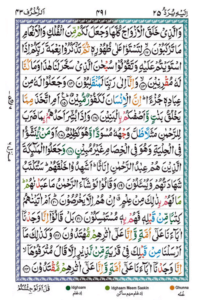 اليه يرد ٢٥ ٤٩١ الزخرف ٤٣
وَالَّذِىْ خَلَقَ الْاَزْوَاجَ كُلَّهَا وَجَعَلَ لَكُمْ مِّنَ الْفُلْكِ وَالْاَنْعَامِ
مَا تَرْكَبُوْنَ ۙ‏ لِتَسْتَوٗا عَلٰى ظُهُوْرِهٖ ثُمَّ تَذْكُرُوْا نِعْمَةَ رَبِّكُمْ اِذَا
اسْتَوَيْتُمْ عَلَيْهِ وَتَقُوْلُوْا سُبْحٰنَ الَّذِىْ سَخَّرَ لَنَا هٰذَا وَمَا كُنَّا
لَهٗ مُقْرِنِيْنَ ۙ‏ وَاِنَّاۤ اِلٰى رَبِّنَا لَمُنْقَلِبُوْنَ‏ وَجَعَلُوْا لَهٗ مِنْ
عِبَادِهٖ جُزْءًا ؕ اِنَّ الْاِنْسَانَ لَكَفُوْرٌ مُّبِيْنٌ ؕ‏ اَمِ اتَّخَذَ مِمَّا
يَخْلُقُ بَنٰتٍ وَّاَصْفٰٮكُمْ بِالْبَنِيْنَ‏ وَاِذَا بُشِّرَ اَحَدُهُمْ بِمَا ضَرَبَ
لِلرَّحْمٰنِ مَثَلًا ظَلَّ وَجْهُهٗ مُسْوَدًّا وَّهُوَ كَظِيْمٌ‏ اَوَمَنْ يُّنَشَّؤُا
فِى الْحِلْيَةِ وَهُوَ فِى الْخِصَامِ غَيْرُ مُبِيْنٍ‏ وَجَعَلُوا الْمَلٰٓئِكَةَ
الَّذِيْنَ هُمْ عِبٰدُ الرَّحْمٰنِ اِنَاثًا ؕ اَشَهِدُوْا خَلْقَهُمْ ؕ سَتُكْتَبُ
شَهَادَتُهُمْ وَيُسْئَلُوْنَ‏ وَقَالُوْا لَوْ شَآءَ الرَّحْمٰنُ مَا عَبَدْنٰهُمْ ؕ
مَا لَهُمْ بِذٰلِكَ مِنْ عِلْمٍ ۗ اِنْ هُمْ اِلَّا يَخْرُصُوْنَ ؕ‏ اَمْ اٰتَيْنٰهُمْ
كِتٰبًا مِّنْ قَبْلِهٖ فَهُمْ بِهٖ مُسْتَمْسِكُوْنَ‏ بَلْ قَالُوْۤا اِنَّا وَجَدْنَاۤ
اٰبَآءَنَا عَلٰٓى اُمَّةٍ وَّاِنَّا عَلٰٓى اٰثٰرِهِمْ مُّهْتَدُوْنَ‏ وَكَذٰلِكَ مَاۤ
اَرْسَلْنَا مِنْ قَبْلِكَ فِىْ قَرْيَةٍ مِّنْ نَّذِيْرٍ اِلَّا قَالَ مُتْرَفُوْهَاۤ ۙ
اِنَّا وَجَدْنَاۤ اٰبَآءَنَا عَلٰٓى اُمَّةٍ وَّاِنَّا عَلٰٓى اٰثٰرِهِمْ مُّقْتَدُوْنَ‏
Idghaam Idghaam Meem Saakin Ghunna